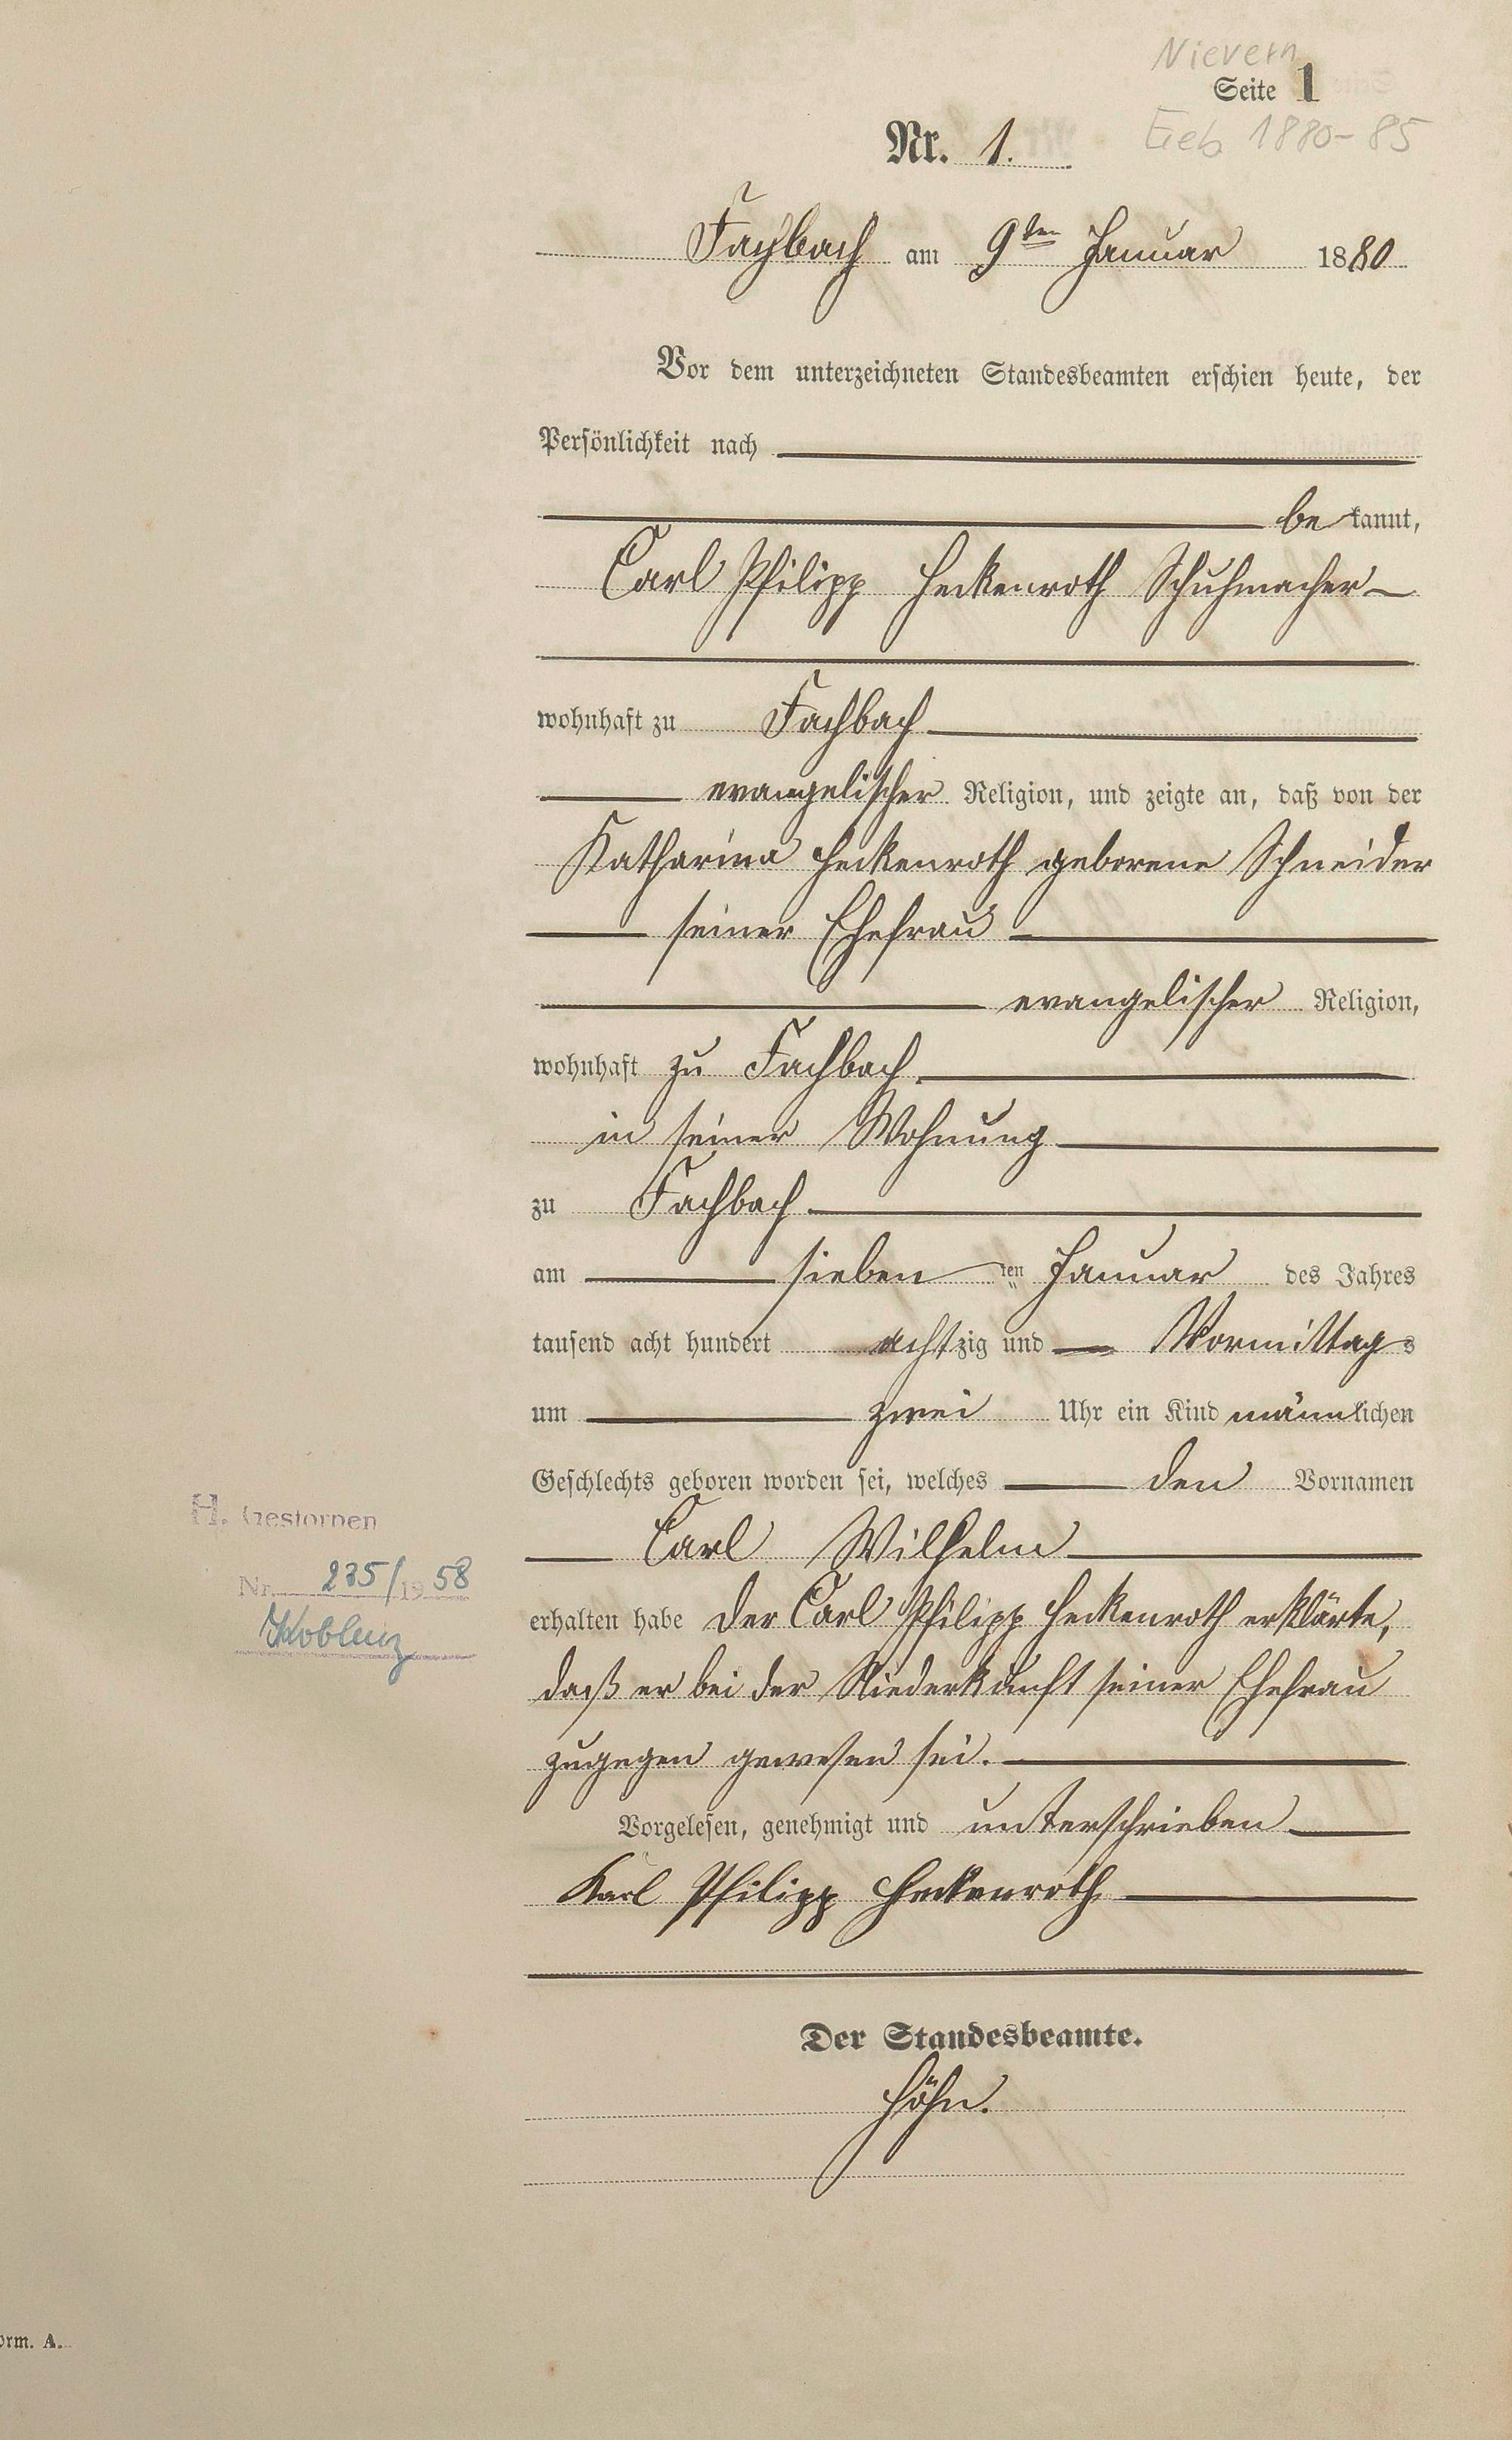 Nievern
Seite 1
Nr. 1.
Geb 1880-85
Fachbach am 9ten Januar 1880
Vor dem unterzeichneten Standesbeamten erschien heute, der
Persönlichkeit nach
be kannt,
Carl Philipp Heckenroth Schuhmacher
wohnhaft zu Fachbach
evangelischer Religion, und zeigte an, daß von der
Katharina Heckenroth geborene Schneider
seiner Ehefrau
evangelischer Religion,
wohnhaft zu Fachbach
in seiner Wohnung
zu Fachbach
am sieben ten Januar des Jahres
tausend acht hundert achtzig und Vormittags
um zwei Uhr ein Kind männlichen
Geschlechts geboren worden sei, welches den Vornamen
Carl Wilhelm
erhalten habe der Carl Philipp Heckenroth erklärte,
daß er bei der Niederkunft seiner Ehefrau
zugegen gewesen sei.
Vorgelesen, genehmigt und unterschrieben
Karl Philipp Heckenroth
Der Standesbeamte.
Höhn.
H. Gestorben
Nr. 235/1958
Koblenz
orm. A.